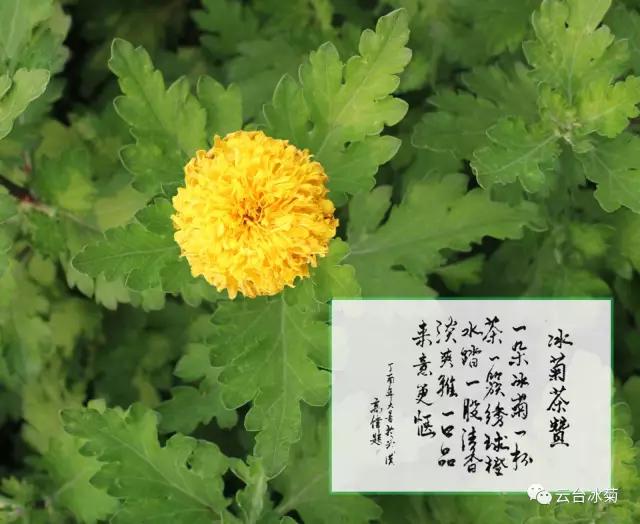 冰菊茶赞
一朵冰菊一杯
茶一簇绣球橙
水踏一股清香
淡爽雅一口品
来意更惬
丁酉年
高伟题
云台冰菊